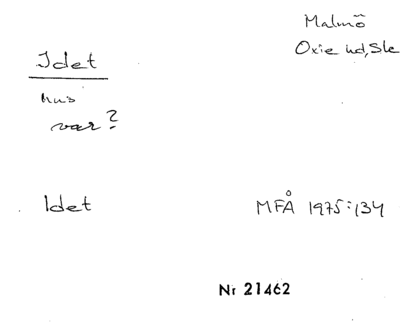 Malmö
Oxie hd, Sk
Idet
hus
var?
Idet MFÅ 1975:134
Nr 21462